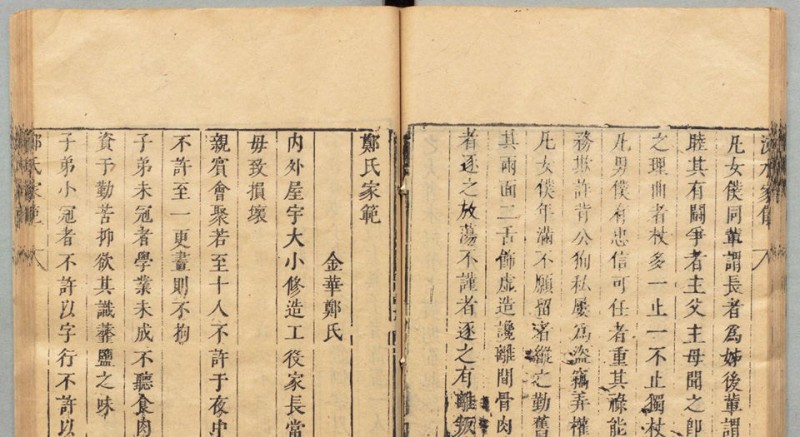 涑水家儀 八
凡女僕同輩謂長者為姊後輩謂
睦其有鬪爭者主父主母聞之即
之理曲者杖多一止一不止獨杖
凡男僕有忠信可任者重其祿能
務欺詐背公狥私屢為盜竊弄權
凡女僕年滿不願留者縱之勤舊
其兩面二舌飾虛造讒離間骨肉
者逐之放蕩不謹者逐之有離叛
鄭氏家範
金華鄭氏
內外屋宇大小修造工役家長當
毋致損壞
親賓會聚若至十人不許于夜中
不許至一更晝則不拘
子弟未冠者學業未成不聽食肉
資于勤苦抑欲其識虀鹽之味
子弟小冠者不許以字行不許以
鄭氏家範 八